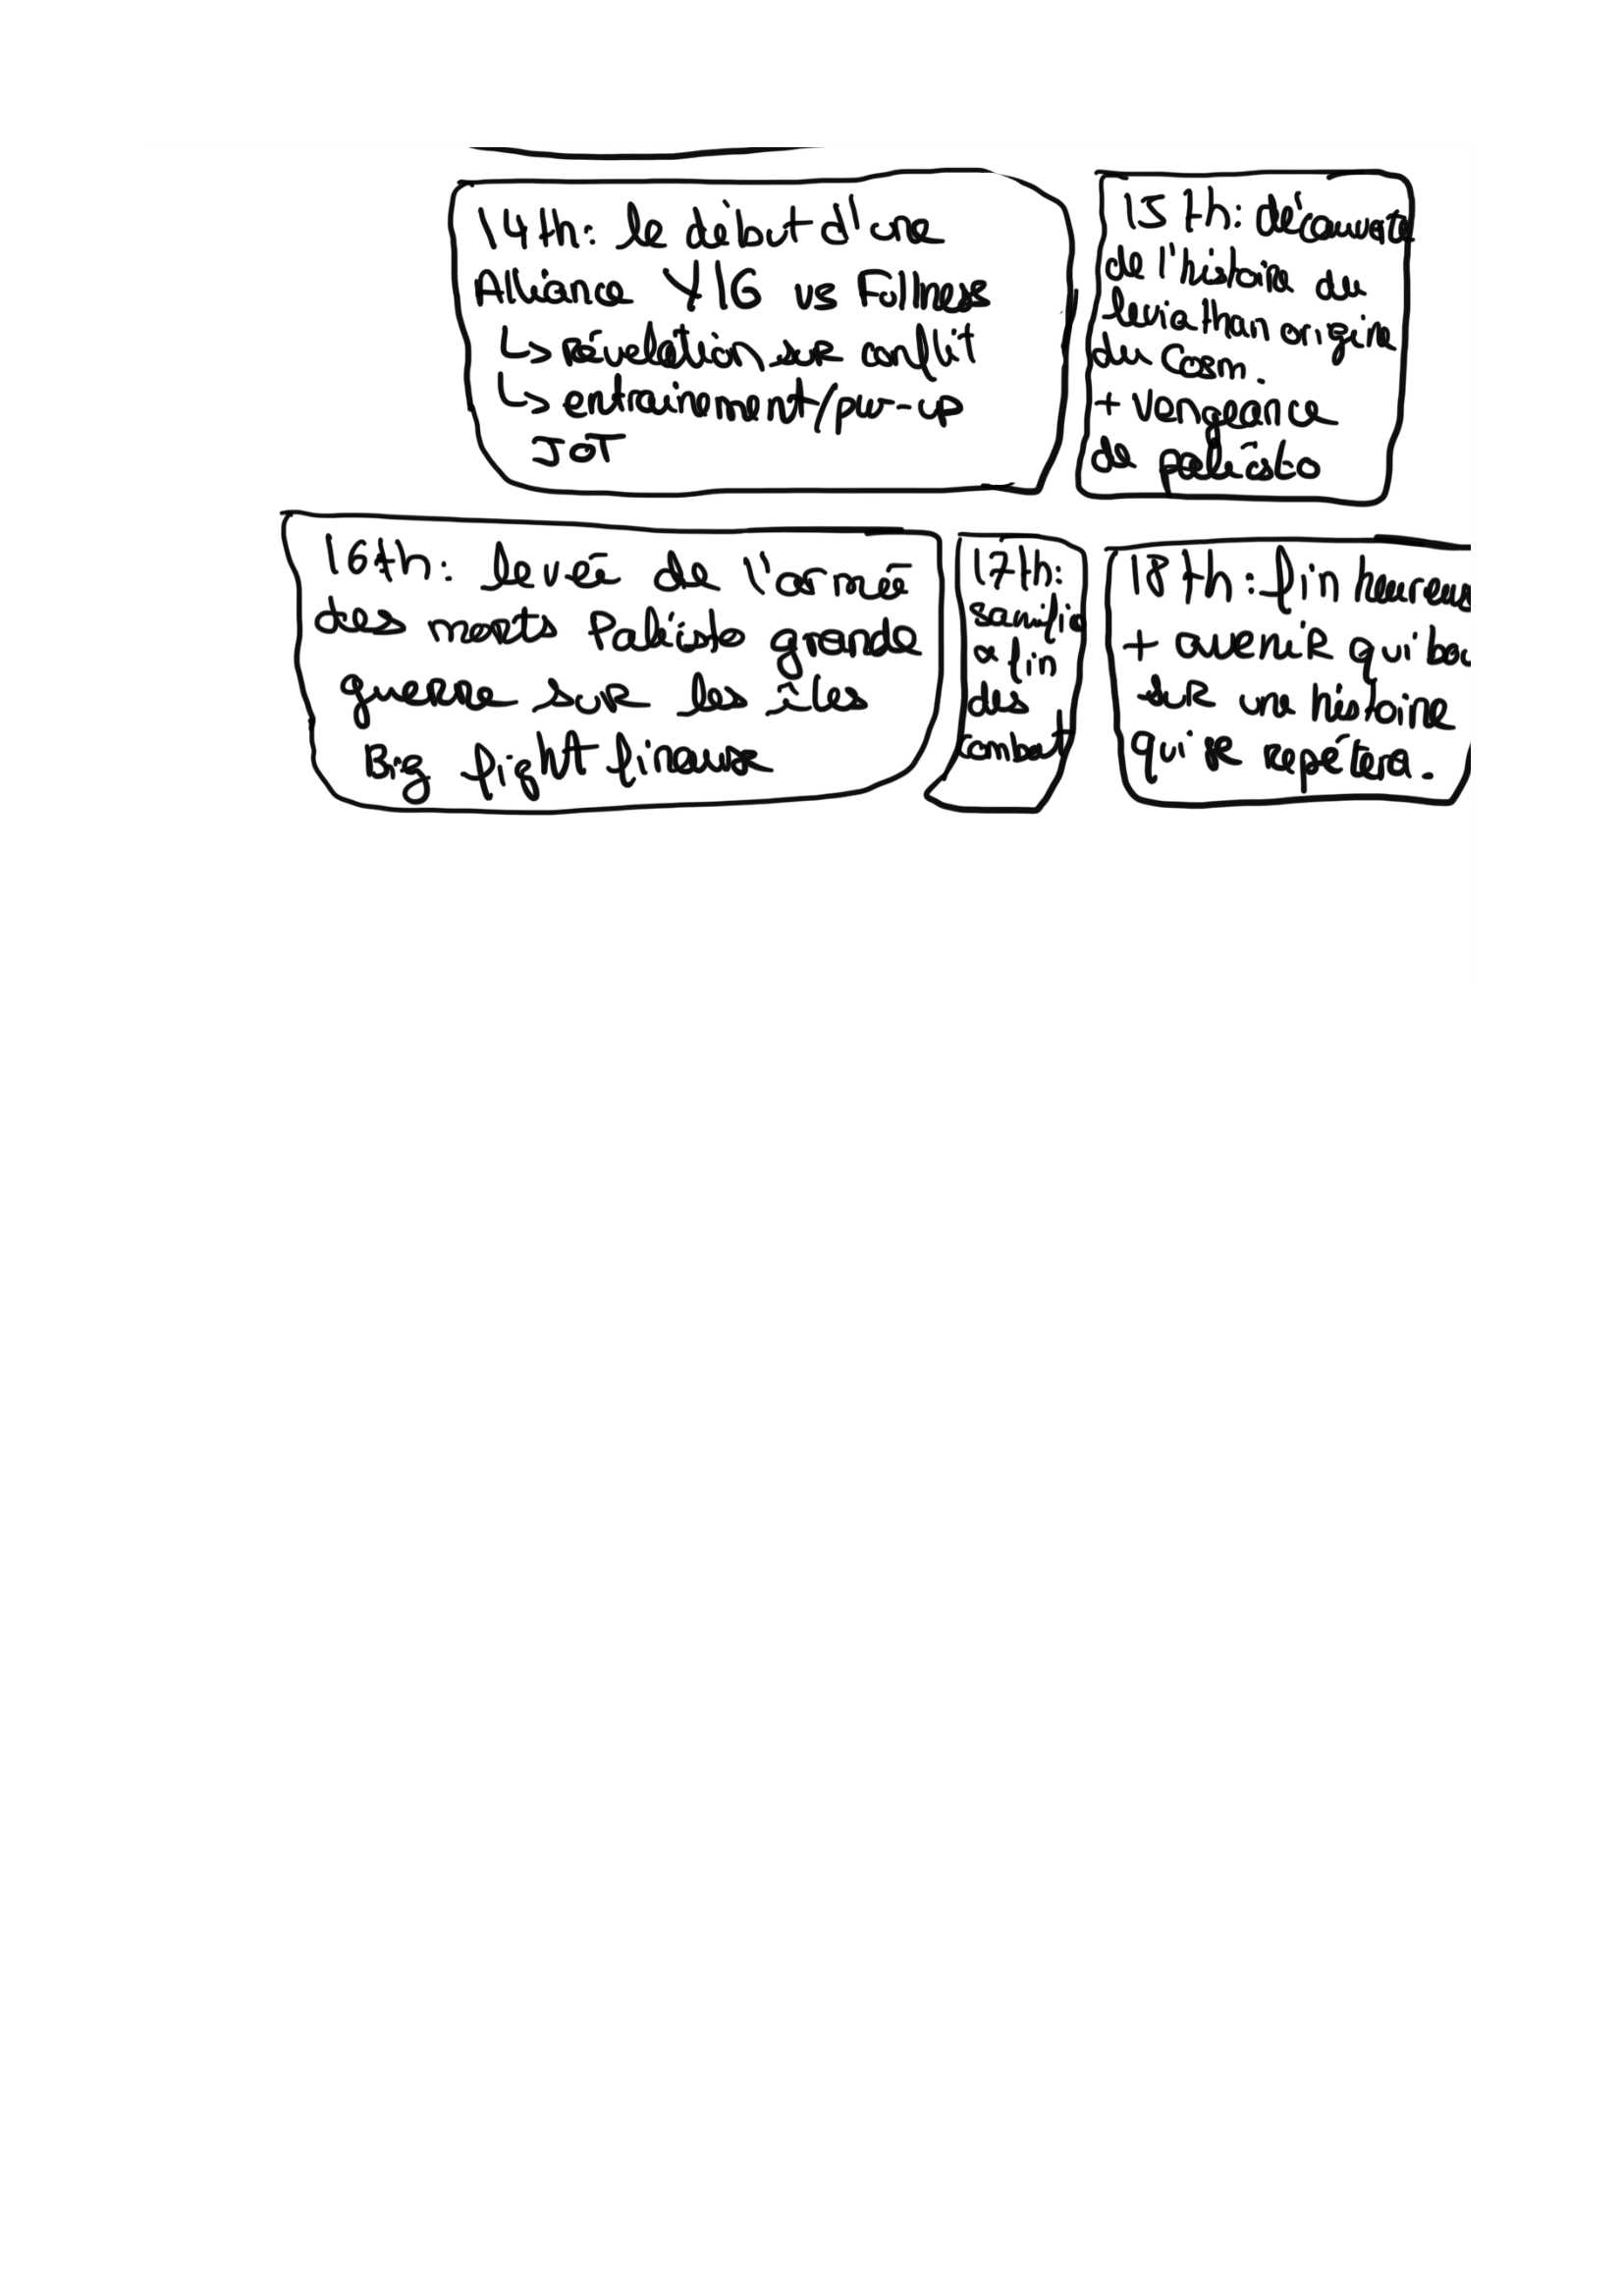 14th: le début d'une
Alliance Y/G vs Follness
↳ révélation sur conflit
↳ entrainement/pw-up
JOT
15th: découverte
de l'histoire du
leviathan origine
du Cosm.
+ vengeance
de palésto
16th: levée de l'armée
des morts Palésto grande
guerre sur les îles
Big fight finaux
17th:
sacrifice
& fin
des
combat
18th: fin heureus
+ avenir qui
sur une histoire
qui se repétera.